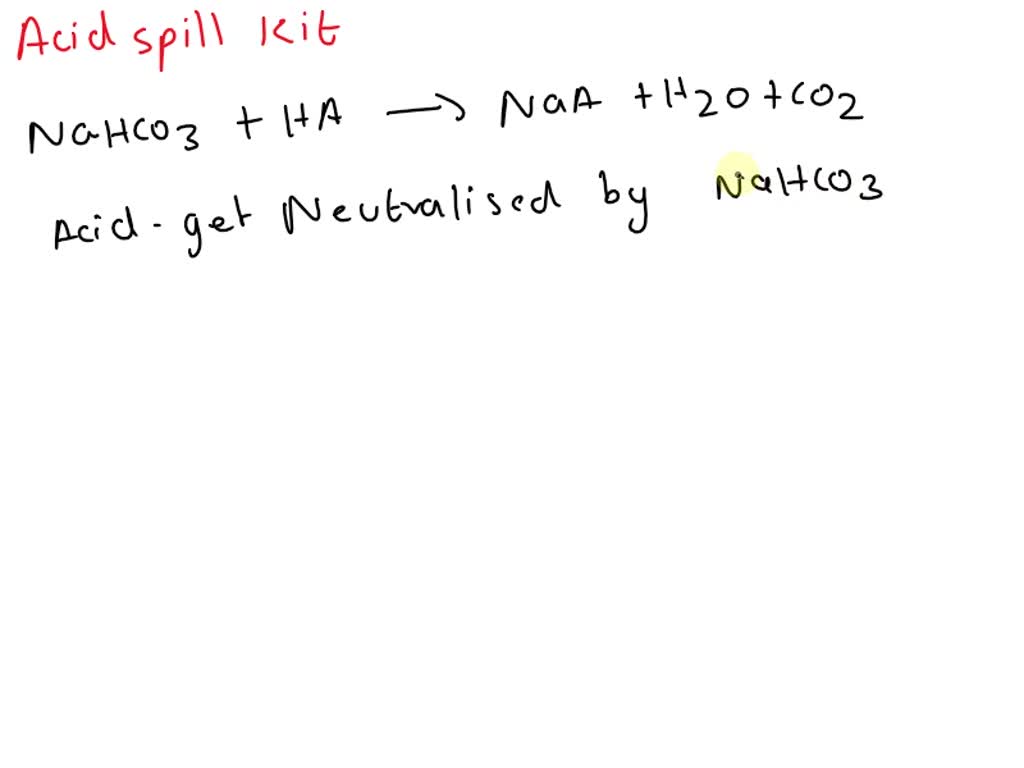 Acid spill kit
NaHCO3 + HA → NaA + H2O + CO2
Acid - get Neutralised by NaHCO3